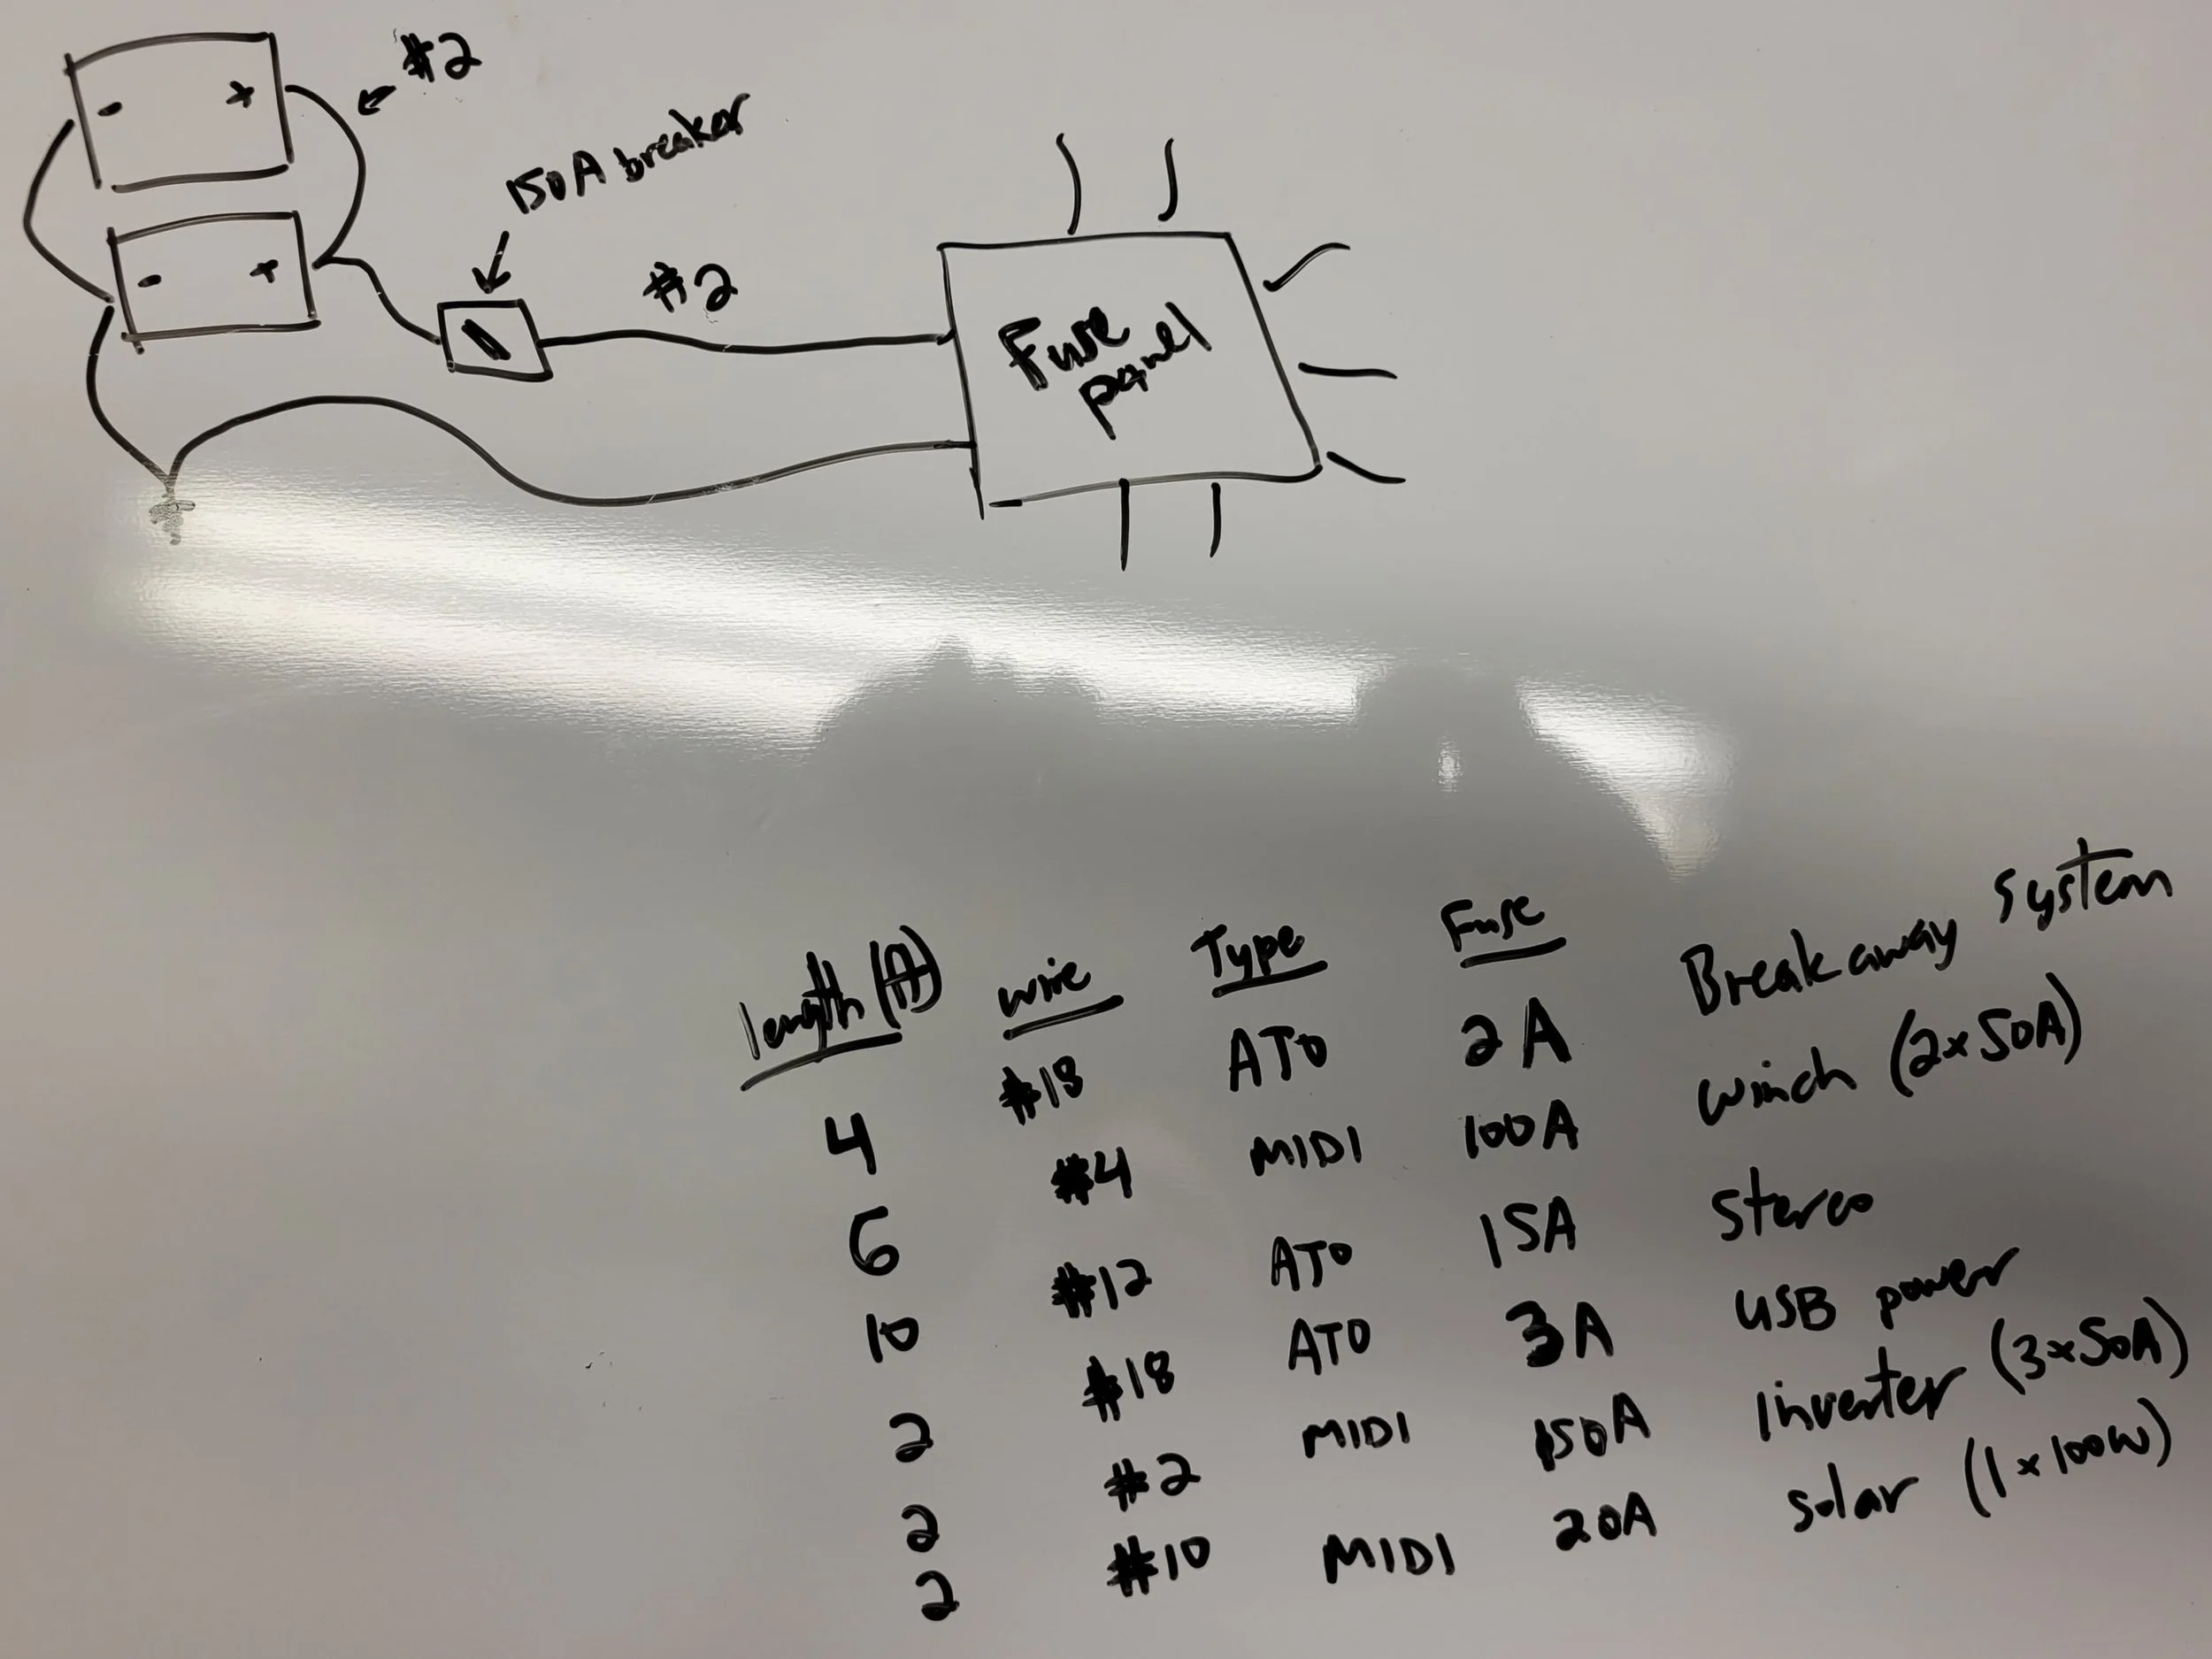 #2
150A breaker
#2
- +
- +
Fuse
panel
length (ft) wire Type Fuse
4 #18 ATO 2A Breakaway system
6 #4 MIDI 100A winch (2x50A)
10 #12 ATO 15A stereo
2 #18 ATO 3A USB power
2 #2 MIDI 150A Inverter (3x50A)
2 #10 MIDI 20A solar (1x100W)